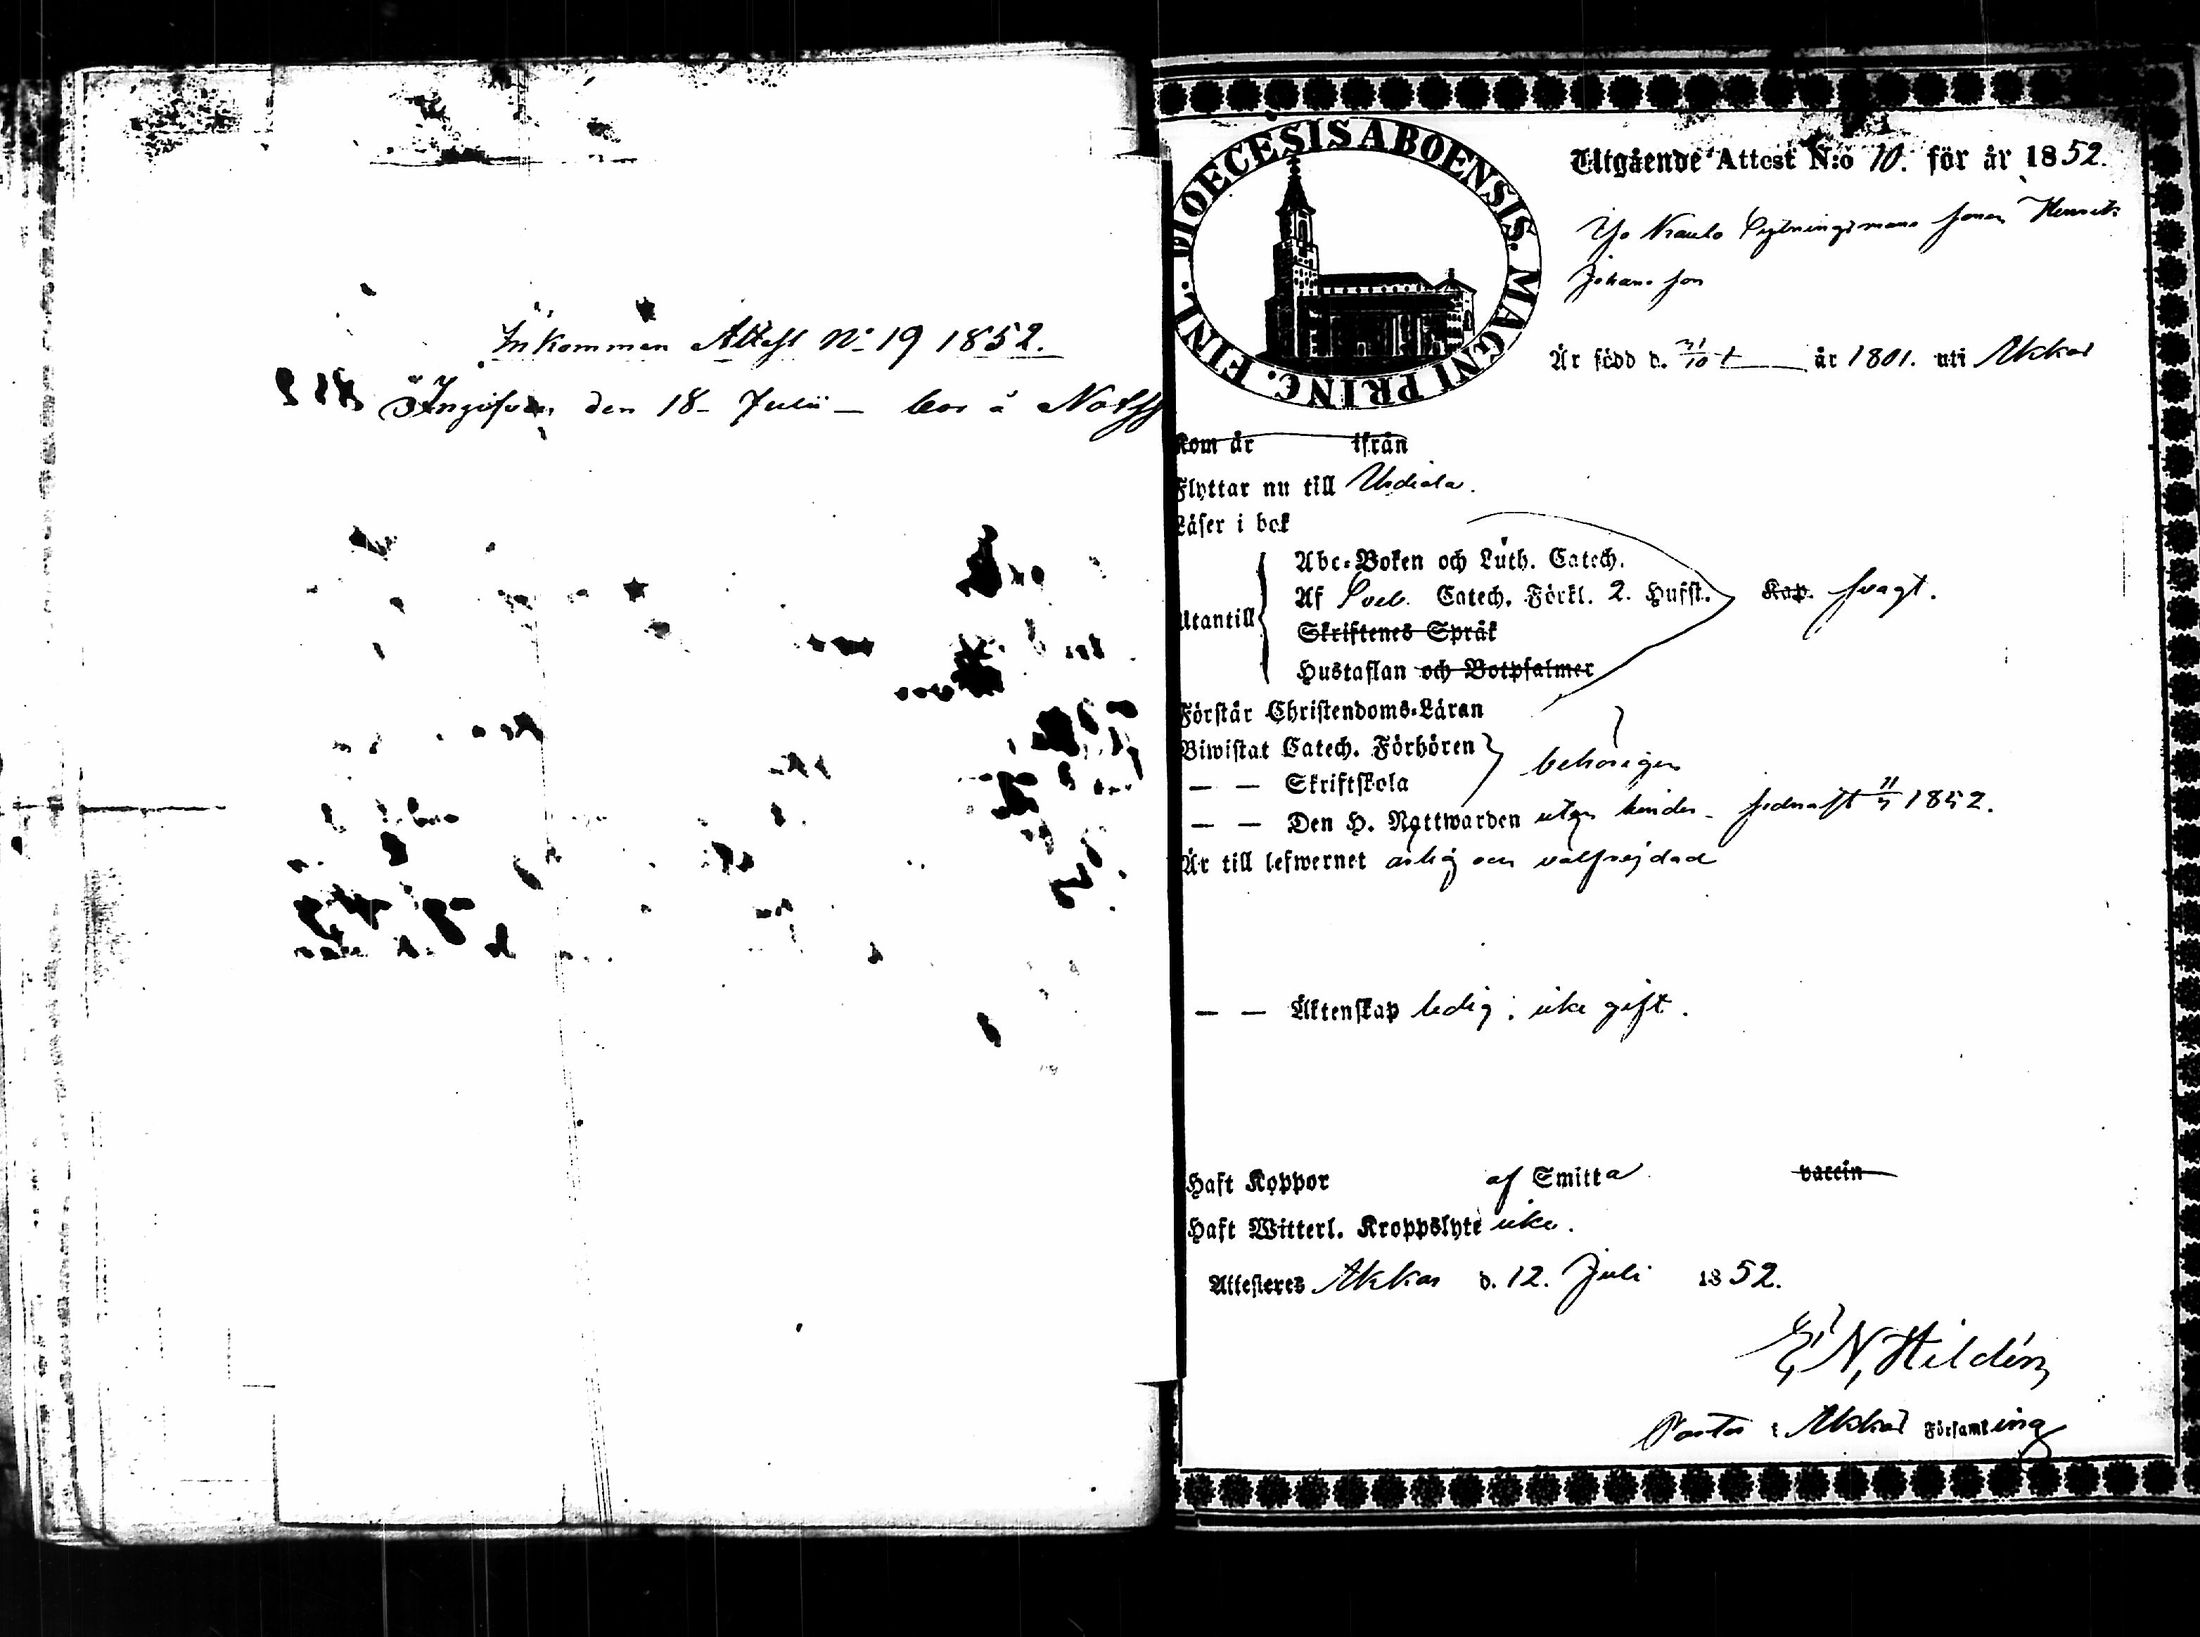 Inkommen Attest No 19 1852.
den 18 Julii — bor å
DIOECESIS ABOENSIS. MAGNI PRINC. FINL.
Utgående Attest N:o 10. för år 1852.
Henrik
Johans son
Är född d. 31/10 år 1801. uti Akkas
Kom år ifrån
Flyttar nu till Urdiala.
Läser i bok
Utantill
Abc-Boken och Luth. Catech.
Af Sveb. Catech. Förkl. 2. Hufst. Kap. svagt.
Skriftenes Språk
Hustaflan och Botpsalmer
Förstår Christendoms-Läran
Biwistat Catech. Förhören
— — Skriftskola behörigen
— — Den H. Nattwarden utan hinder sednast 11/7 1852.
Är till lefwernet ärlig och välfrejdad
— — Äktenskap ledig; icke gift.
Haft Koppor af Smitta vaccin
Haft Witterl. Kroppslyte icke.
Attesteras Akkas d. 12. Juli 1852.
E. N. Hildén
Pastor i Akkas Församling